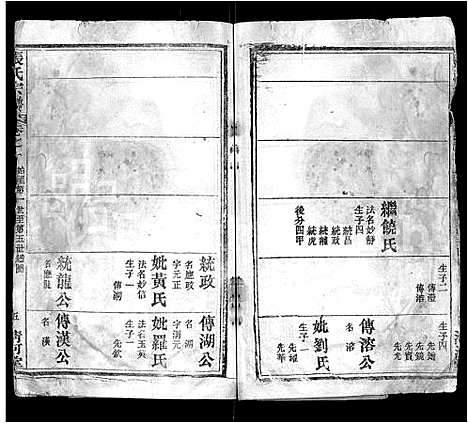 生子二
傳澄
傳溶
繼饒氏
法名妙靜
生子四
統昌
統政
統龍
統虎
後分四甲
生子四
傳溶公
名溶
妣劉氏
生子二
先躍
先華
統政
名應政
字元正
妣黃氏
法名妙信
生子一
傳湖
統龍公
名應龍
傳湖公
名湖
字清元
妣羅氏
法名玉英
生子一
先欽
傳漢公
名漢
張氏宗譜
始遷第一世至第五世總圖
五
清河堂